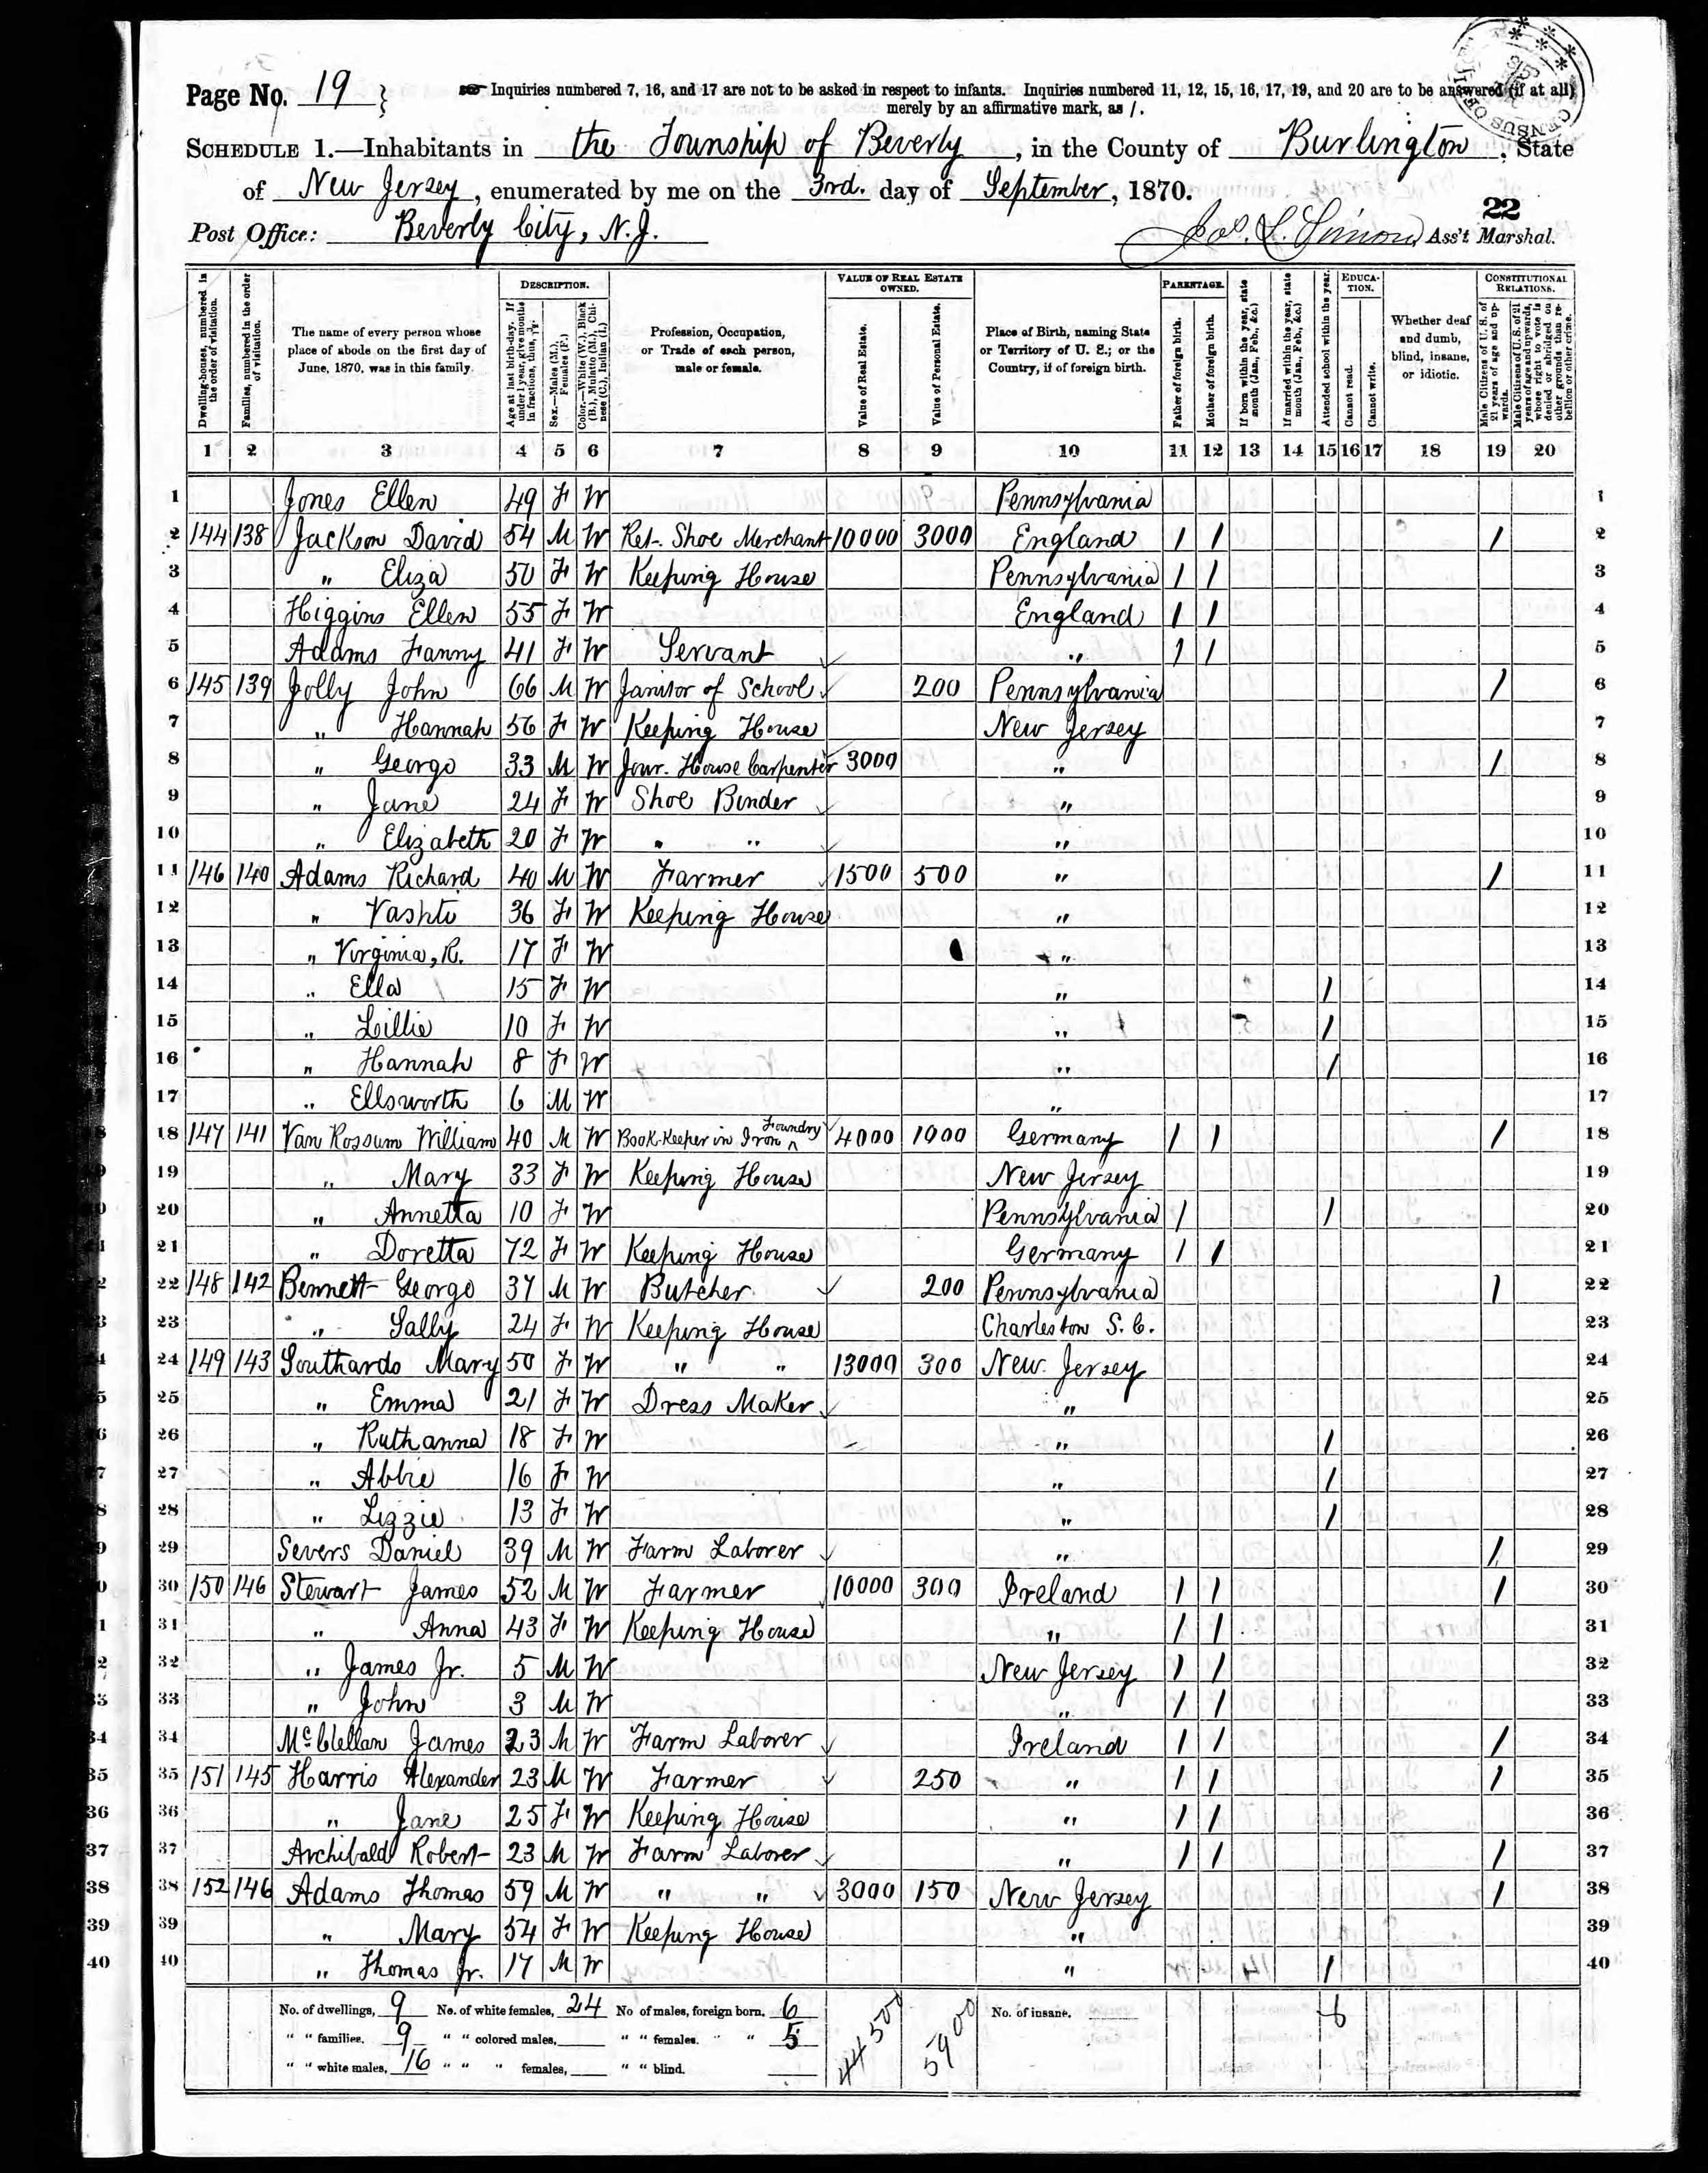 Page No. 19 } Inquiries numbered 7, 16, and 17 are not to be asked in respect to infants. Inquiries numbered 11, 12, 15, 16, 17, 19, and 20 are to be answered (if at all)
merely by an affirmative mark, as /.
SCHEDULE 1.—Inhabitants in the Township of Beverly, in the County of Burlington, State
of New Jersey, enumerated by me on the 3rd. day of September, 1870.
22
Post Office: Beverly City, N.J. Ass't Marshal.
Dwelling-houses, numbered in the order of visitation.
Families, numbered in the order of visitation.
The name of every person whose place of abode on the first day of June, 1870, was in this family.
DESCRIPTION.
Age at last birth-day. If under 1 year, give months in fractions, thus, 3/12.
Sex.—Males (M.), Females (F.)
Color.—White (W.), Black (B.), Mulatto (M.), Chinese (C.), Indian (I.)
Profession, Occupation, or Trade of each person, male or female.
VALUE OF REAL ESTATE OWNED.
Value of Real Estate.
Value of Personal Estate.
Place of Birth, naming State or Territory of U. S.; or the Country, if of foreign birth.
PARENTAGE.
Father of foreign birth.
Mother of foreign birth.
If born within the year, state month (Jan., Feb., &c.)
If married within the year, state month (Jan., Feb., &c.)
Attended school within the year.
EDUCATION.
Cannot read.
Cannot write.
Whether deaf and dumb, blind, insane, or idiotic.
CONSTITUTIONAL RELATIONS.
Male Citizens of U. S. of 21 years of age and upwards.
Male Citizens of U. S. of 21 years of age and upwards, whose right to vote is denied or abridged on other grounds than rebellion or other crime.
1 2 3 4 5 6 7 8 9 10 11 12 13 14 15 16 17 18 19 20
1 Jones Ellen 49 F W Pennsylvania 1
2 144 138 Jackson David 54 M W Ret. Shoe Merchant 10000 3000 England / / / 2
3 " Eliza 50 F W Keeping House Pennsylvania / / 3
4 Higgins Ellen 55 F W England / / 4
5 Adams Fanny 41 F W Servant " / / 5
6 145 139 Jolly John 66 M W Janitor of School 200 Pennsylvania / 6
7 " Hannah 56 F W Keeping House New Jersey 7
8 " George 33 M W Jour. House Carpenter 3000 " / 8
9 " Jane 24 F W Shoe Binder " 9
10 " Elizabeth 20 F W " " " 10
11 146 140 Adams Richard 40 M W Farmer 1500 500 " / 11
12 " Vashti 36 F W Keeping House " 12
13 " Virginia, R. 17 F W " 13
14 " Ella 15 F W " / 14
15 " Lillie 10 F W " / 15
16 " Hannah 8 F W " / 16
17 " Ellsworth 6 M W " 17
18 147 141 Van Rossum William 40 M W Book-Keeper in Iron Foundry 4000 1000 Germany / / / 18
19 " Mary 33 F W Keeping House New Jersey 19
20 " Annetta 10 F W Pennsylvania / / 20
21 " Doretta 72 F W Keeping House Germany / / 21
22 148 142 Bennett George 37 M W Butcher 200 Pennsylvania / 22
23 " Sally 24 F W Keeping House Charleston S. C. 23
24 149 143 Southards Mary 50 F W " " 13000 300 New Jersey 24
25 " Emma 21 F W Dress Maker " 25
26 " Ruthanna 18 F W " / 26
27 " Abbie 16 F W " / 27
28 " Lizzie 13 F W " / 28
29 Severs Daniel 39 M W Farm Laborer " / 29
30 150 146 Stewart James 52 M W Farmer 10000 300 Ireland / / / 30
31 " Anna 43 F W Keeping House " / / 31
32 " James Jr. 5 M W New Jersey / / 32
33 " John 3 M W " / / 33
34 McClellan James 23 M W Farm Laborer Ireland / / / 34
35 151 145 Harris Alexander 23 M W Farmer 250 " / / / 35
36 " Jane 25 F W Keeping House " / / 36
37 Archibald Robert 23 M W Farm Laborer " / / / 37
38 152 146 Adams Thomas 59 M W " " 3000 150 New Jersey / 38
39 " Mary 54 F W Keeping House " 39
40 " Thomas Jr. 17 M W " / 40
No. of dwellings, 9 No. of white females, 24 No of males, foreign born, 6 44500 5900 No. of insane,
" " families, 9 " " colored males, " " females, " " 5
" " white males, 16 " " " females, " " blind.